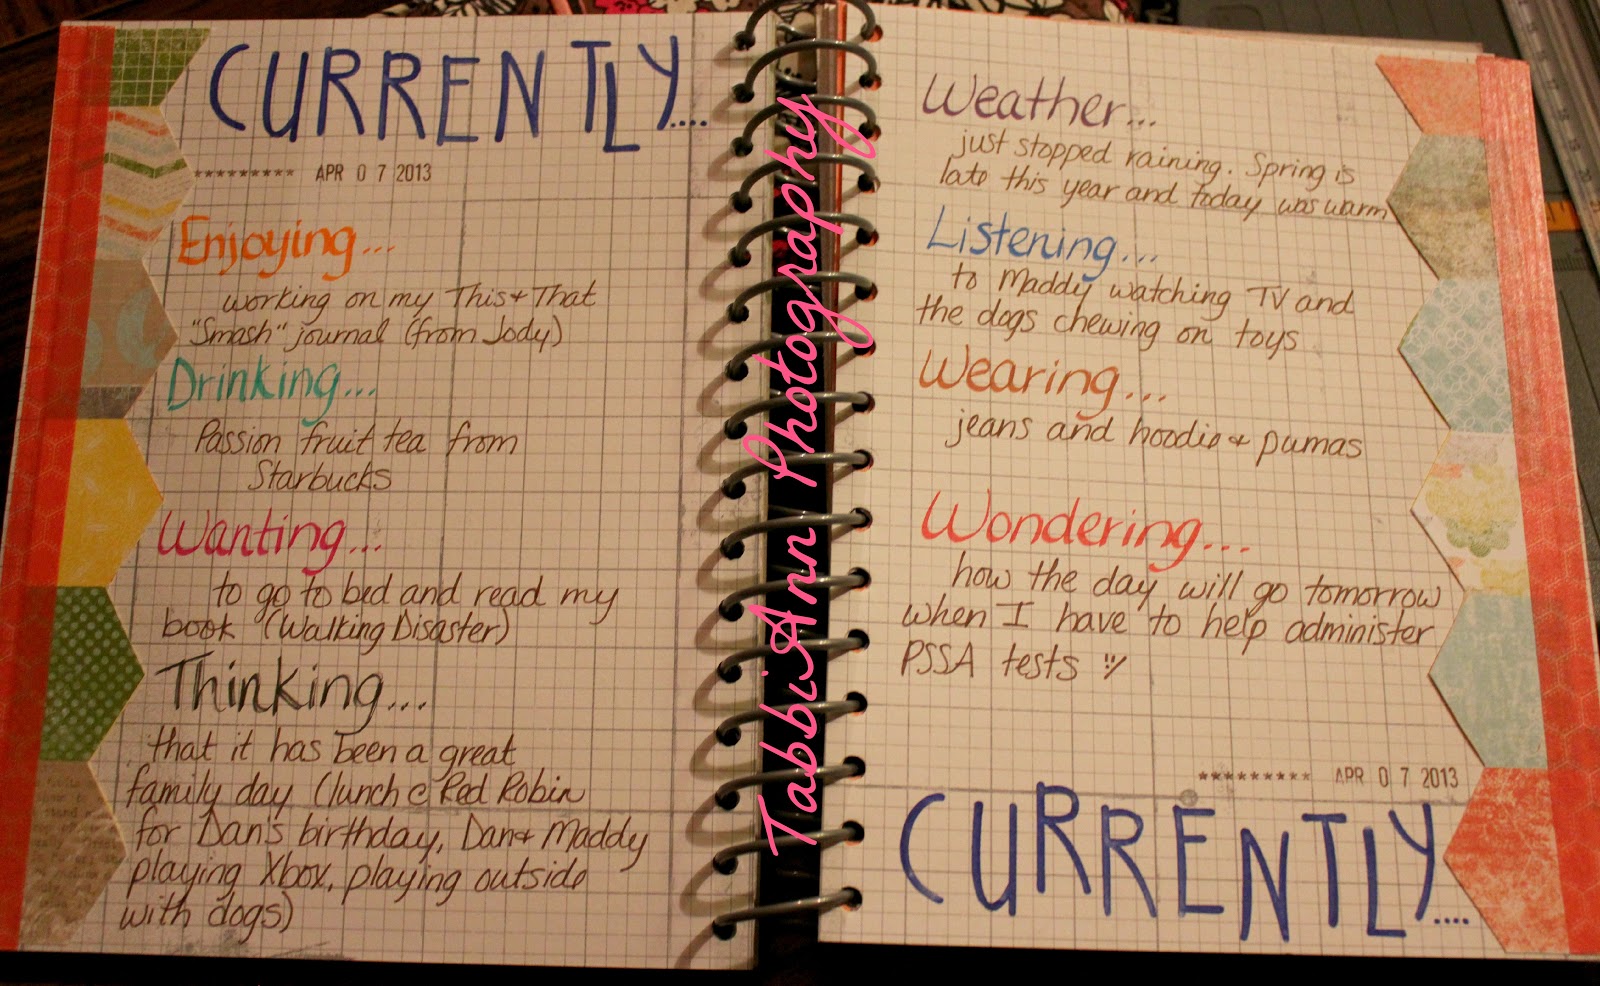 CURRENTLY....
********* APR 0 7 2013
Enjoying...
working on my This + That
"Smash" journal (from Jody)
Drinking...
Passion fruit tea from
Starbucks
Wanting...
to go to bed and read my
book (Walking Disaster)
Thinking...
that it has been a great
family day (lunch @ Red Robin
for Dan's birthday, Dan + Maddy
playing Xbox, playing outside
with dogs)
TabbiAnn Photography
Weather...
just stopped raining. Spring is
late this year and today was warm
Listening...
to Maddy watching TV and
the dogs chewing on toys
Wearing...
jeans and hoodie + pumas
Wondering...
how the day will go tomorrow
when I have to help administer
PSSA tests
********* APR 0 7 2013
CURRENTLY....